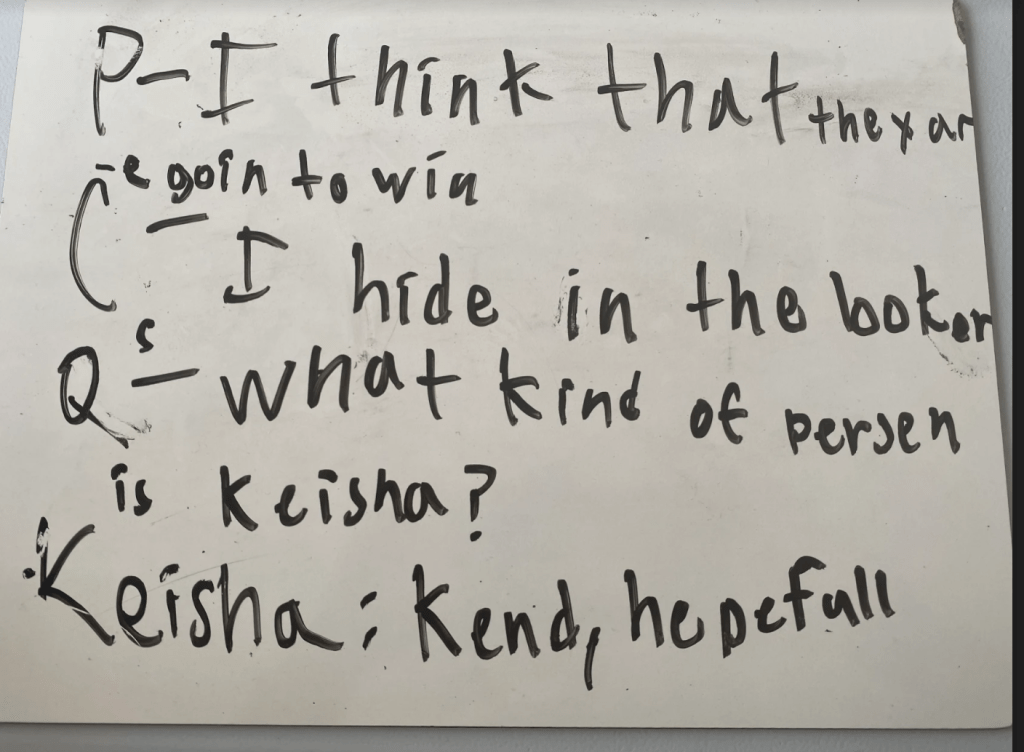 P-I think that they ar
-e goin to win
C - I hide in the booker
Qs - what kind of persen
is Keisha?
Keisha: kend, hepefull